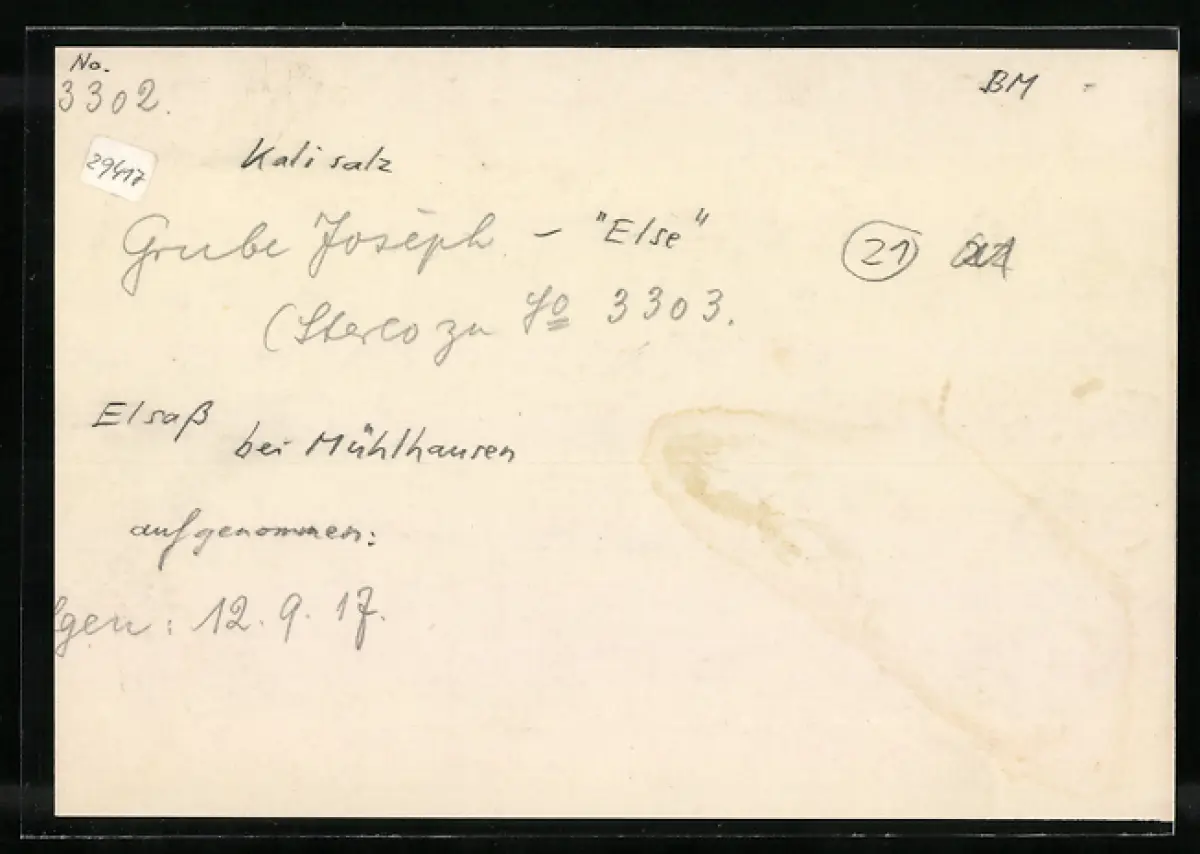 No.
3302.
BM
29417
Kalisalz
Grube Joseph - "Else"
21
(Stereo zu No 3303.
Elsaß
bei Mühlhausen
aufgenommen:
gen: 12. 9. 17.